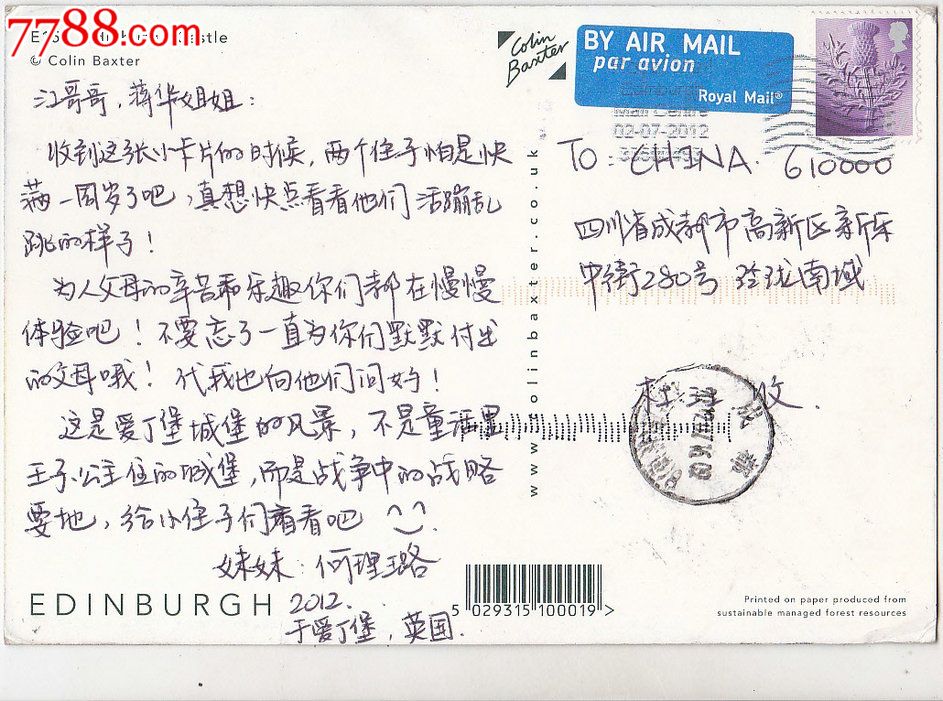 7788.com
© Colin Baxter
Colin
Baxter
BY AIR MAIL
par avion
Royal Mail®
Edinburgh
Mail Centre
02-07-2012
江哥哥，蒋华姐姐：
收到这张小卡片的时候，两个侄子怕是快
满一周岁了吧，真想快点看看他们活蹦乱
跳的样子！
为人父母的辛苦和乐趣你们都在慢慢
体验吧！不要忘了一直为你们默默付出
的父母哦！代我也向他们问好！
这是爱丁堡城堡的风景，不是童话里
王子公主住的城堡，而是战争中的战略
要地，给小侄子们看看吧
妹妹：何理璐
2012.
于爱丁堡，英国.
TO CHINA 610000
四川省成都市高新区新乐
中街280号 玲珑南域
收.
www.colinbaxter.co.uk
EDINBURGH
5 029315 100019 >
Printed on paper produced from
sustainable managed forest resources